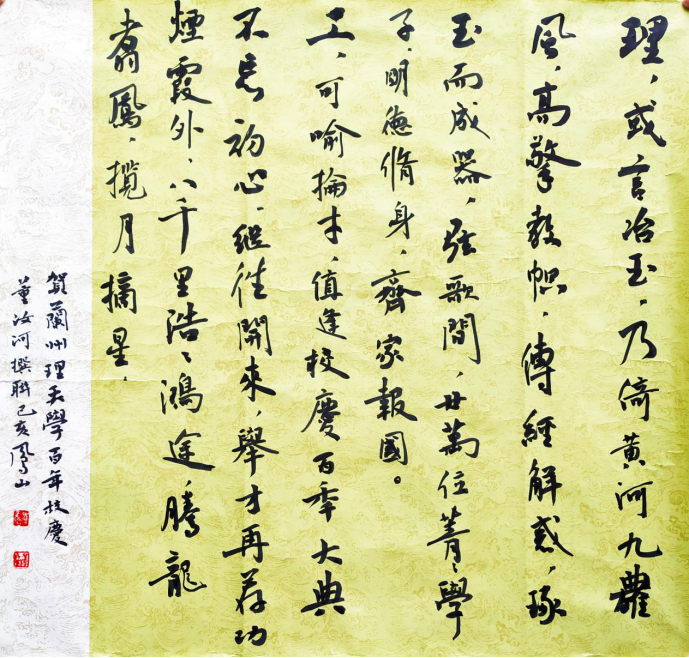 理，或言冶玉，乃倚黄河九
風，高擎教幟，傳經解惑，琢
玉而成器，弦歌間，廿萬位菁〻學
子，明德脩身，齊家報國。
工，可喻掄才，值逢校慶百年大典
不忘初心，繼往開來，舉才再荐功
煙霞外，八千里浩〻鴻途，騰龍
翥鳳，攬月摘星．
賀蘭州理工大學百年校慶
董汝河撰聯己亥鳳山